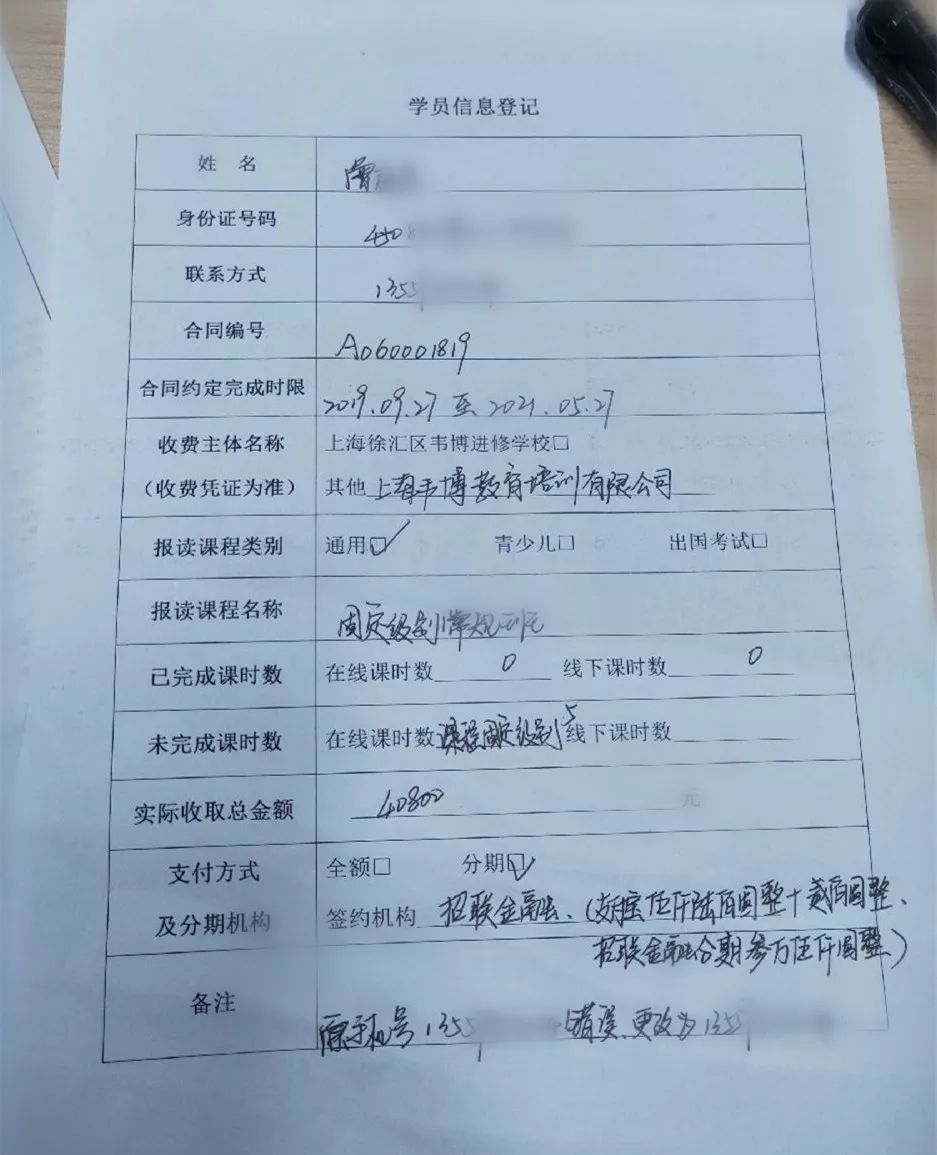 学员信息登记
姓 名
身份证号码 450
联系方式 1355
合同编号 A060001819
合同约定完成时限 2019.09.27 至 2021.05.27
收费主体名称 上海徐汇区韦博进修学校□
（收费凭证为准） 其他 上海韦博教育培训有限公司
报读课程类别 通用☑ 青少儿□ 出国考试□
报读课程名称 固定级别常规班
已完成课时数 在线课时数 0 线下课时数 0
未完成课时数 在线课时数 课程固定级别5 线下课时数
实际收取总金额 40800 元
支付方式 全额□ 分期☑
及分期机构 签约机构 招联金融、（支付宝伍仟陆佰圆整+贰佰圆整、
招联金融分期叁万伍仟圆整）
备注 原手机号1355 错误、更改为1355